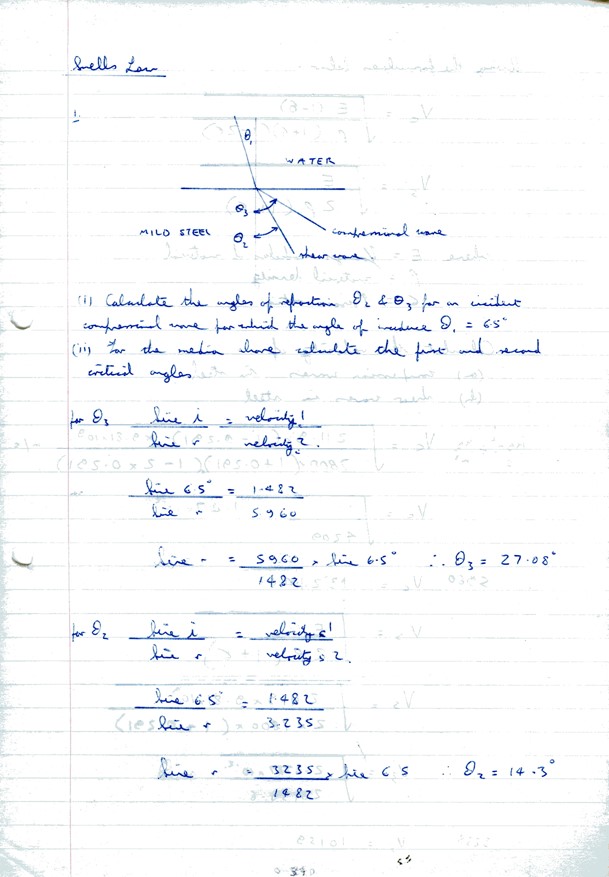 Snells Law
1.
θ1
WATER
θ3
MILD STEEL
θ2
compressional wave
shear wave
(i) Calculate the angles of refraction θ2 & θ3 for an incident
compressional wave for which the angle of incidence θ1 = 6.5°
(ii) For the media above calculate the first and second
critical angles
for θ3 Sine i = velocity 1
Sine r velocity 2.
Sine 6.5° = 1.482
Sine r 5960
Sine r = 5960 × Sine 6.5° ∴ θ3 = 27.08°
1482
for θ2 Sine i = velocity s 1
Sine r velocity s 2.
Sine 6.5° = 1.482
Sine r 3.235
Sine r = 3235 × Sine 6.5 ∴ θ2 = 14.3°
1482